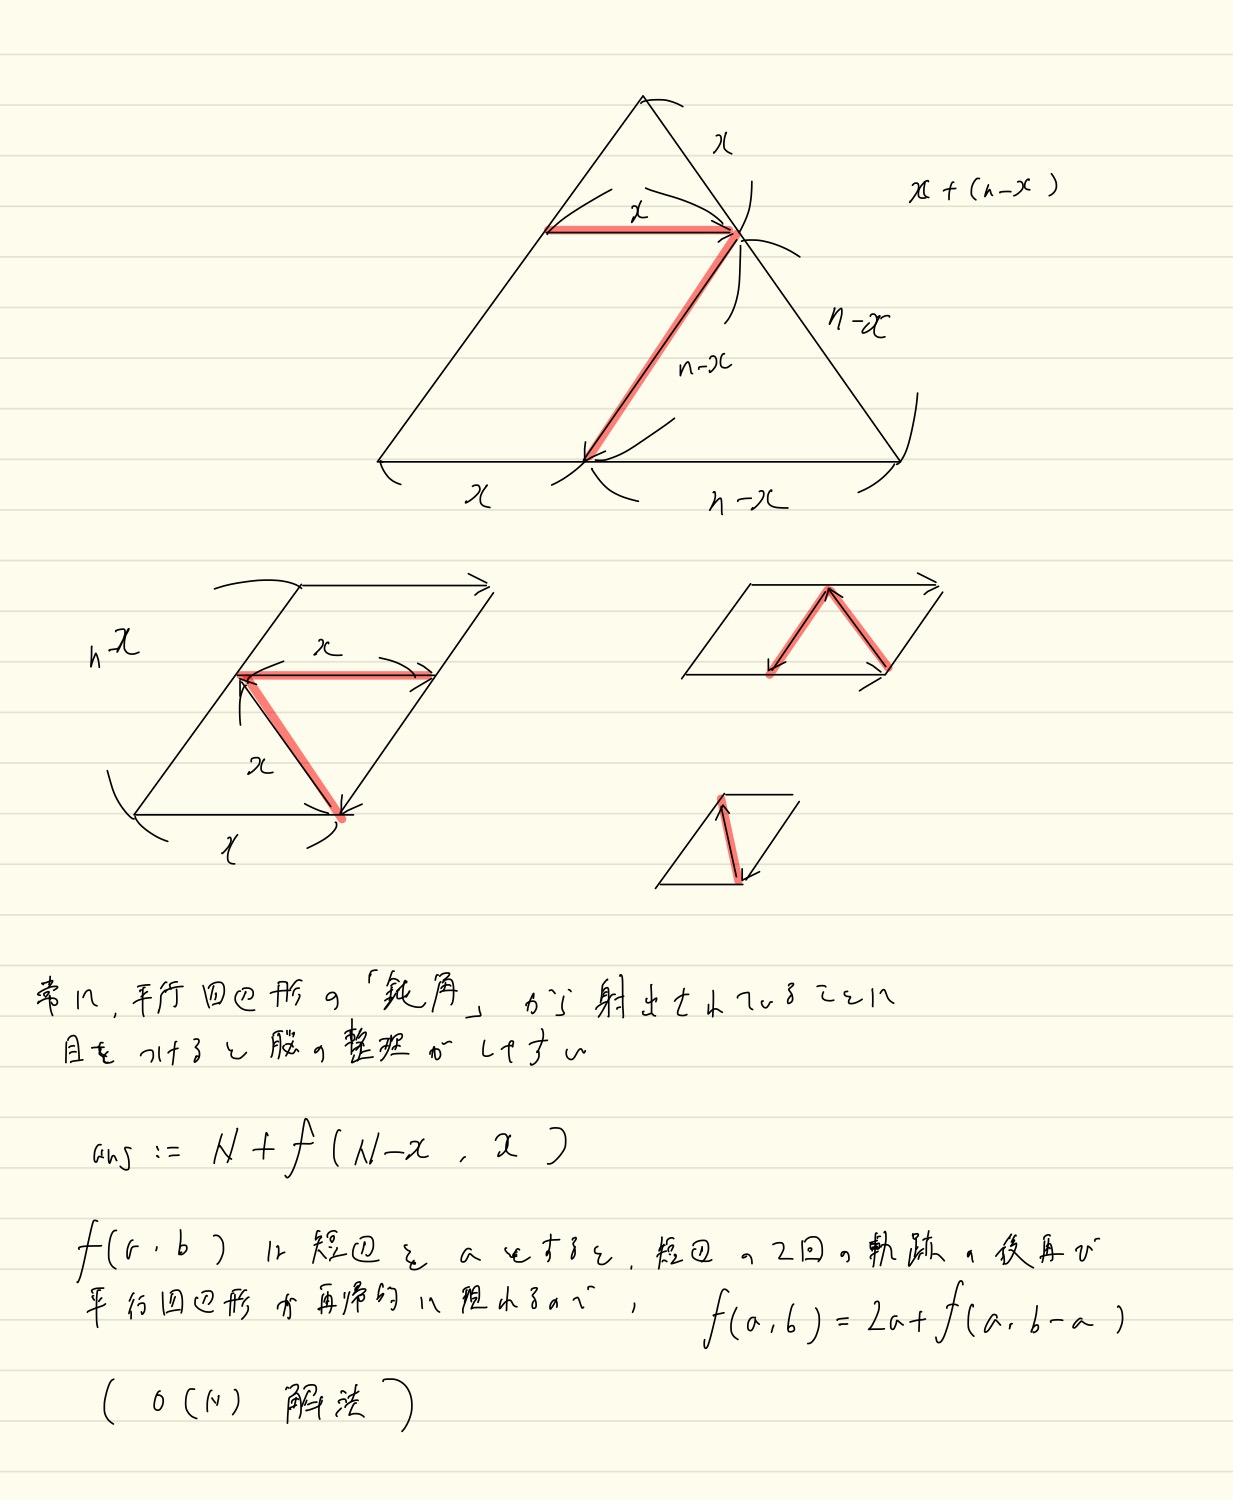 x
x
x + (n-x)
n-x
n-x
x
n-x
n-x
x
x
x
常に、平行四辺形の「鈍角」から射出されていることに
目をつけると脳の整理がしやすい
ans := N + f(N-x, x)
f(a,b) は短辺を a とすると、短辺の2回の軌跡の後再び
平行四辺形が再帰的に現れるので、 f(a,b) = 2a + f(a, b-a)
( O(N) 解法 )